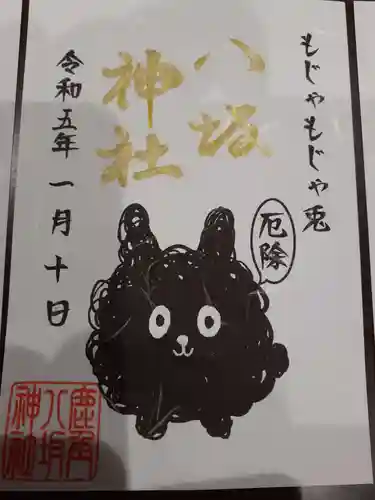 もじゃもじゃ兎
八坂
神社
厄除
令和五年 一月十日
鹿角
八坂
神社